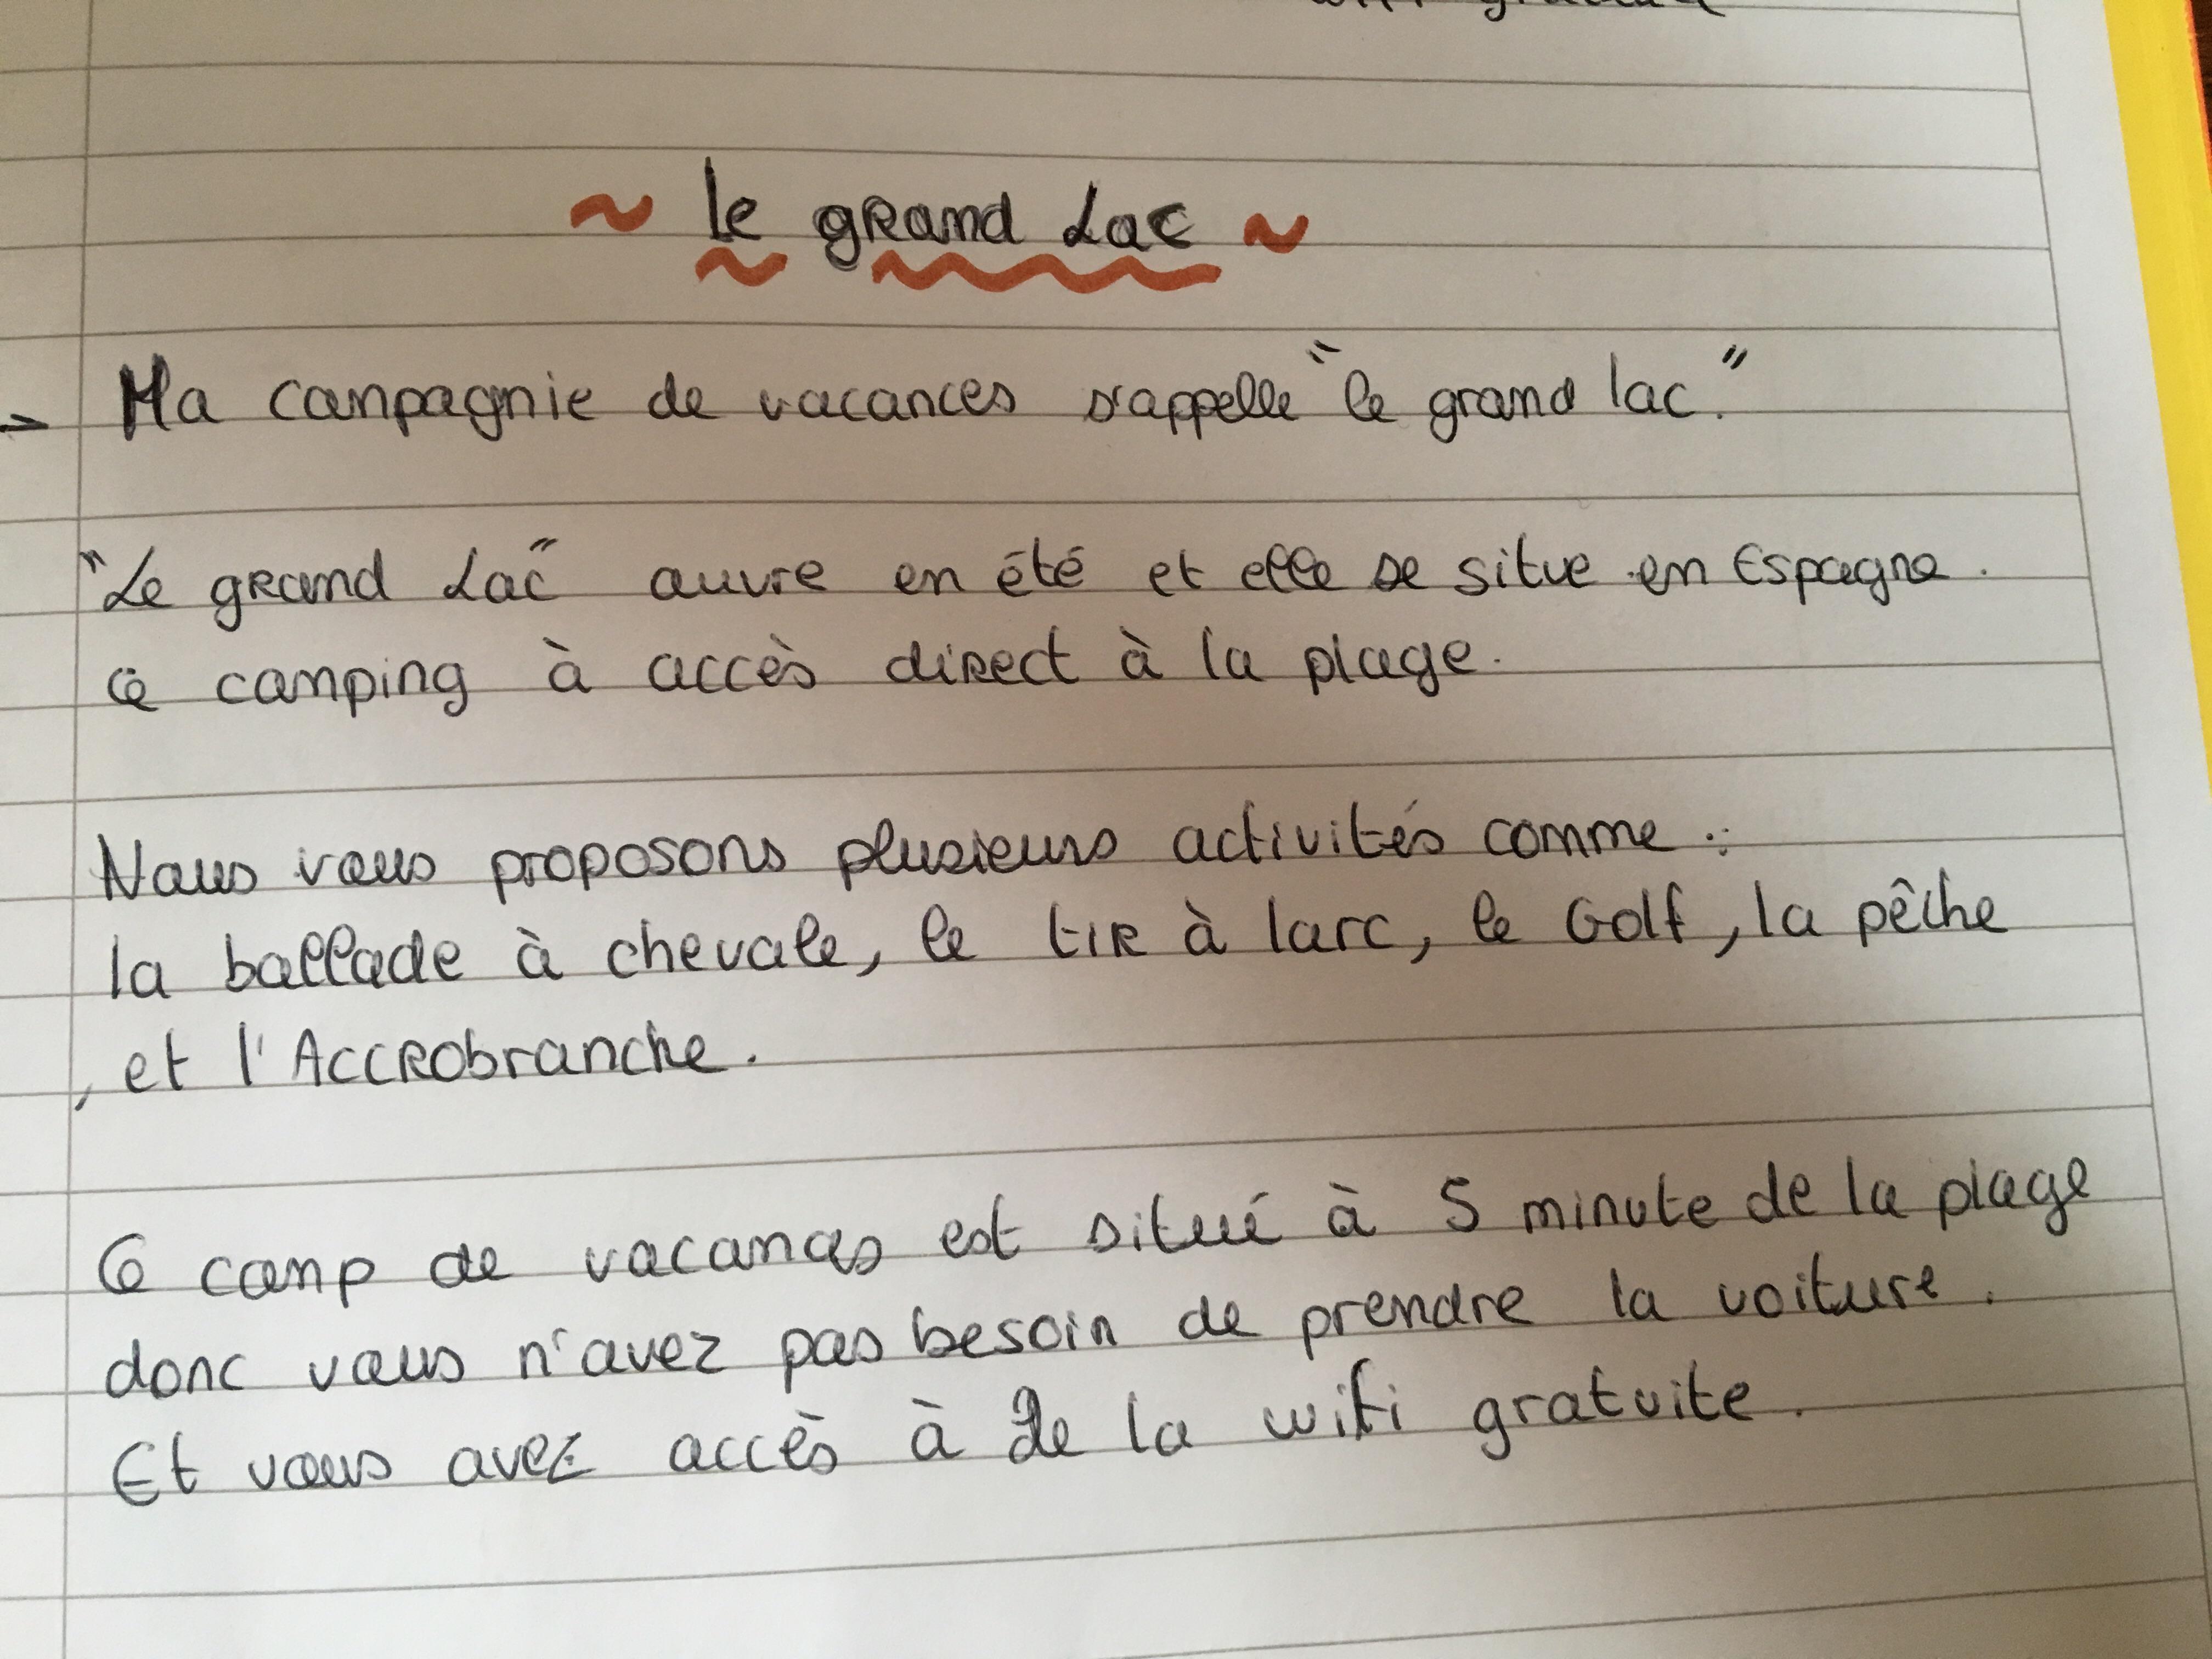 ~ le grand Lac ~
→ Ma campagnie de vacances s'appelle "le grand lac."
"Le grand Lac" ouvre en été et elle se situe en Espagne.
ce camping à accès direct à la plage.
Nous vous proposons plusieurs activités comme :
la ballade à chevale, le tir à larc, le Golf, la pêche
, et l'Accrobranche.
Ce camp de vacances est situé à 5 minute de la plage
donc vous n'avez pas besoin de prendre la voiture.
Et vous avez accès à de la wifi gratuite.